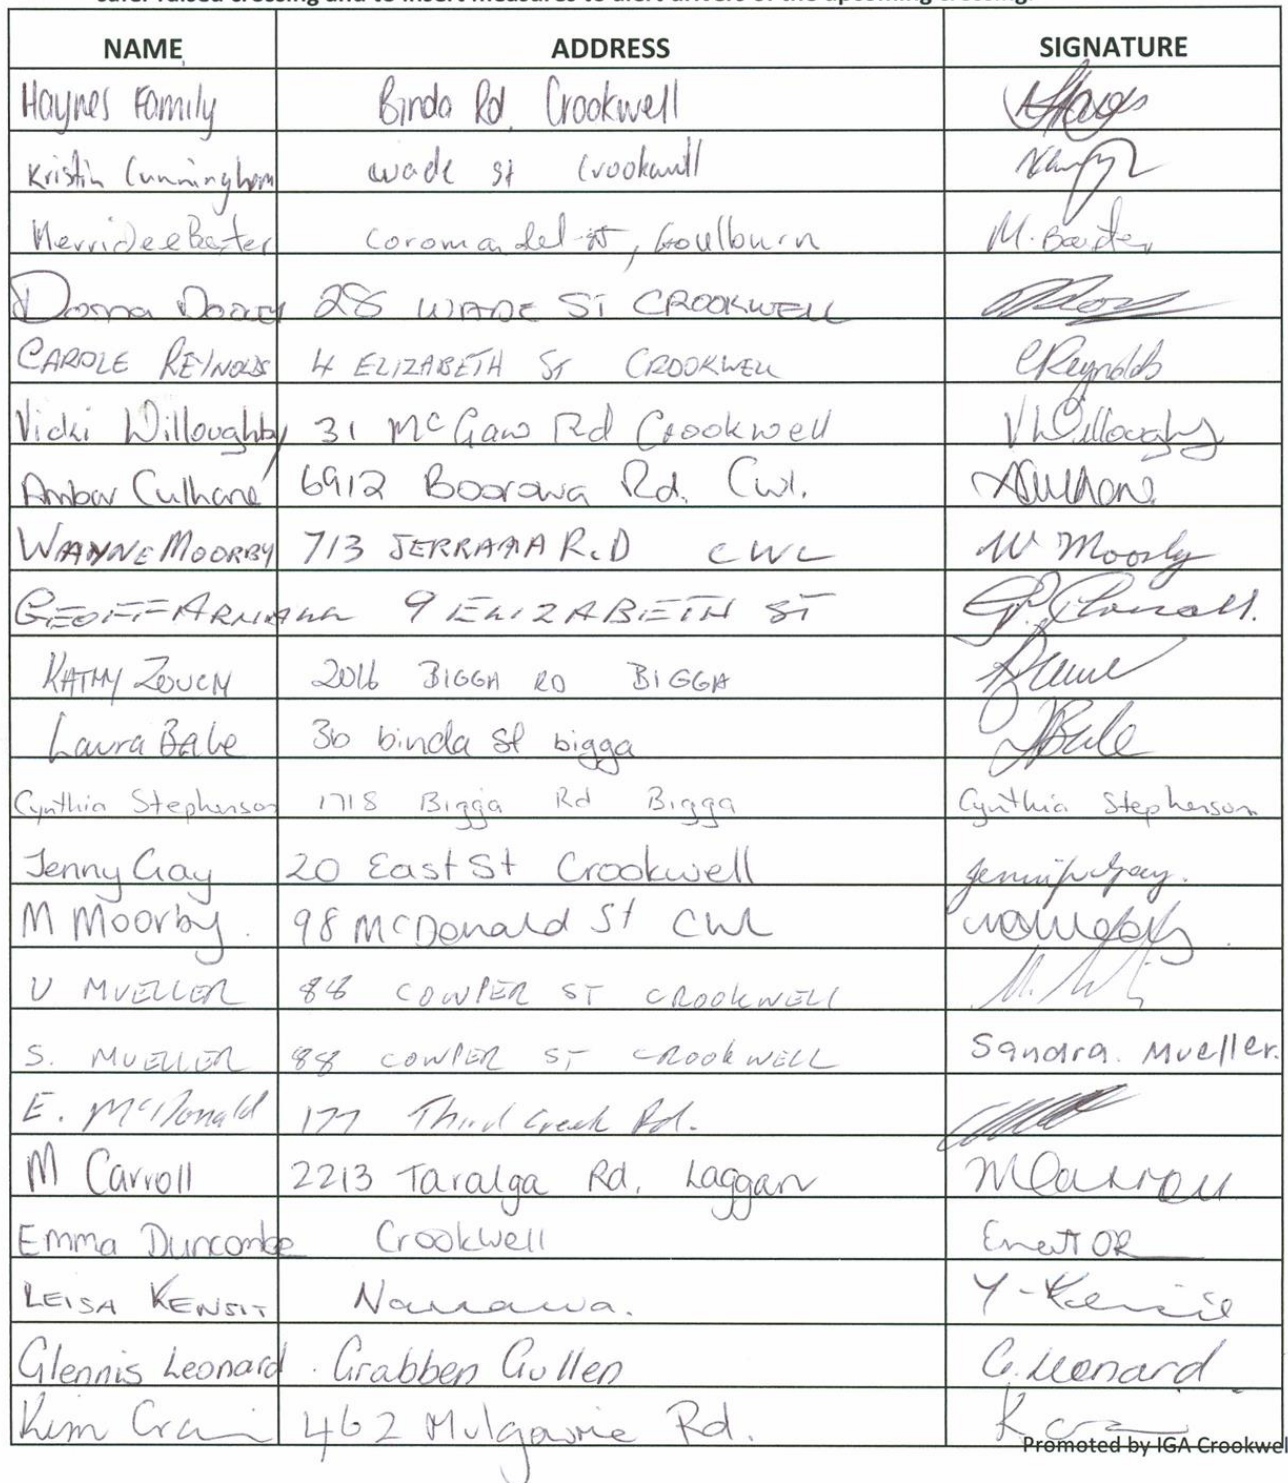 safer raised crossing and to insert measures to alert drivers of the upcoming crossing.
NAME ADDRESS SIGNATURE
Haynes Family Binda Rd Crookwell
Kristin Cunningham wade st Crookwell
Merridee Baxter coromandel st, Goulburn M. Baxter
Donna 28 WADE ST CROOKWELL
CAROLE REYNOLDS 4 ELIZABETH ST CROOKWELL C Reynolds
Vicki Willoughby 31 McGaw Rd Crookwell V Willoughby
Amber Culhane 6912 Boorowa Rd. Cwl. A Culhane
WAYNE MOORBY 713 JERRARA R.D CWL W Moorby
GEOFF 9 ELIZABETH ST
KATHY ZOUCH 2016 BIGGA RD BIGGA
Laura Bale 36 binda st bigga LBale
Cynthia Stephenson 1718 Bigga Rd Bigga Cynthia Stephenson
Jenny Gay 20 East St Crookwell Jennifer Gay.
M Moorby. 98 McDonald St CWL
U MUELLER 88 COWPER ST CROOKWELL
S. MUELLER 88 COWPER ST CROOKWELL Sandra. Mueller.
E. McDonald 177 Third Creek Rd.
M Carroll 2213 Taralga Rd, Laggan MCarroll
Emma Duncombe Crookwell
LEISA KENSIT Narrawa.
Glennis Leonard. Grabben Gullen G. Leonard
Kim 462 Mulgowrie Rd.
Promoted by IGA Crookwel